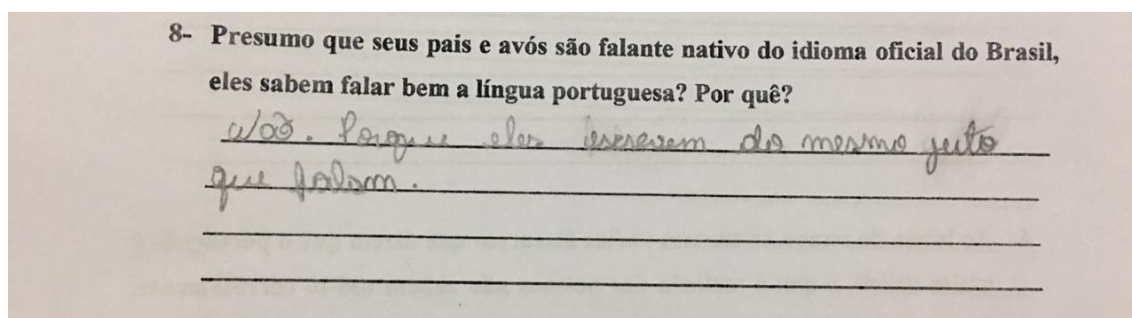 8- Presumo que seus pais e avós são falante nativo do idioma oficial do Brasil,
eles sabem falar bem a língua portuguesa? Por quê?
Não. Porque eles escrevem do mesmo jeito
que falam.